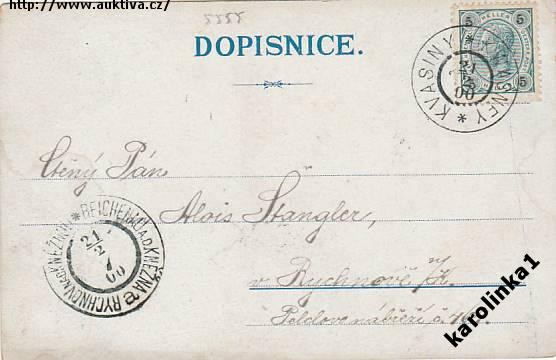 http://www.auktiva.cz/
5555
DOPISNICE.
5 HELLER 5
5 5
KVASINY * KWASNEY *
21/2 00
Ctěný Pán
Alois Stangler,
v Rychnově n/K.
Poldovo nábřeží č.
REICHENAU A.D. KNĚŽNA RYCHNOV N. KNĚŽNOU *
21/2 00
karolinka1